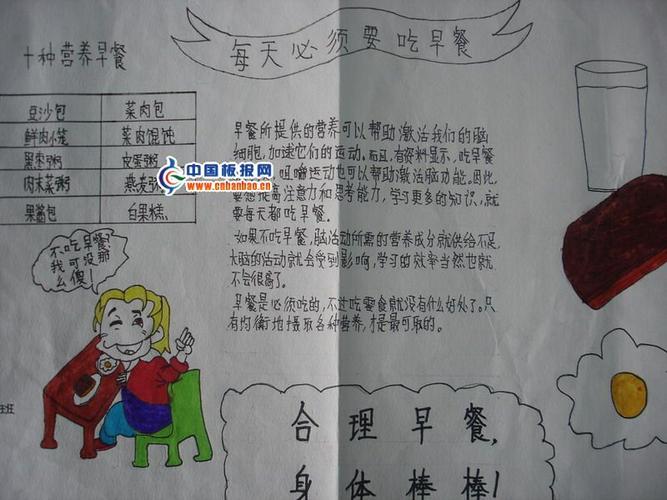 每天必须要吃早餐
十种营养早餐
豆沙包 菜肉包
鲜肉小笼 菜肉馄饨
黑枣粥 皮蛋粥
肉末菜粥 燕麦
果酱包 白果糕
早餐所提供的营养可以帮助激活我们的脑
细胞,加速它们的运动。而且,有资料显示,吃早餐
咀嚼运动也可以帮助激活脑功能。因此,
要想提高注意力和思考能力,学习更多的知识,就
要每天都吃早餐。
如果不吃早餐,脑活动所需的营养成分就供给不足,
大脑的活动就会受到影响,学习的效率当然也就
不会很高了。
早餐是必须吃的,不过吃零食就没有什么好处了。只
有均衡地摄取各种营养,才是最可取的。
中国板报网
www.cnbanbao.cn
不吃早餐,
我可没那
么傻!
班
合理早餐,
身体棒棒!